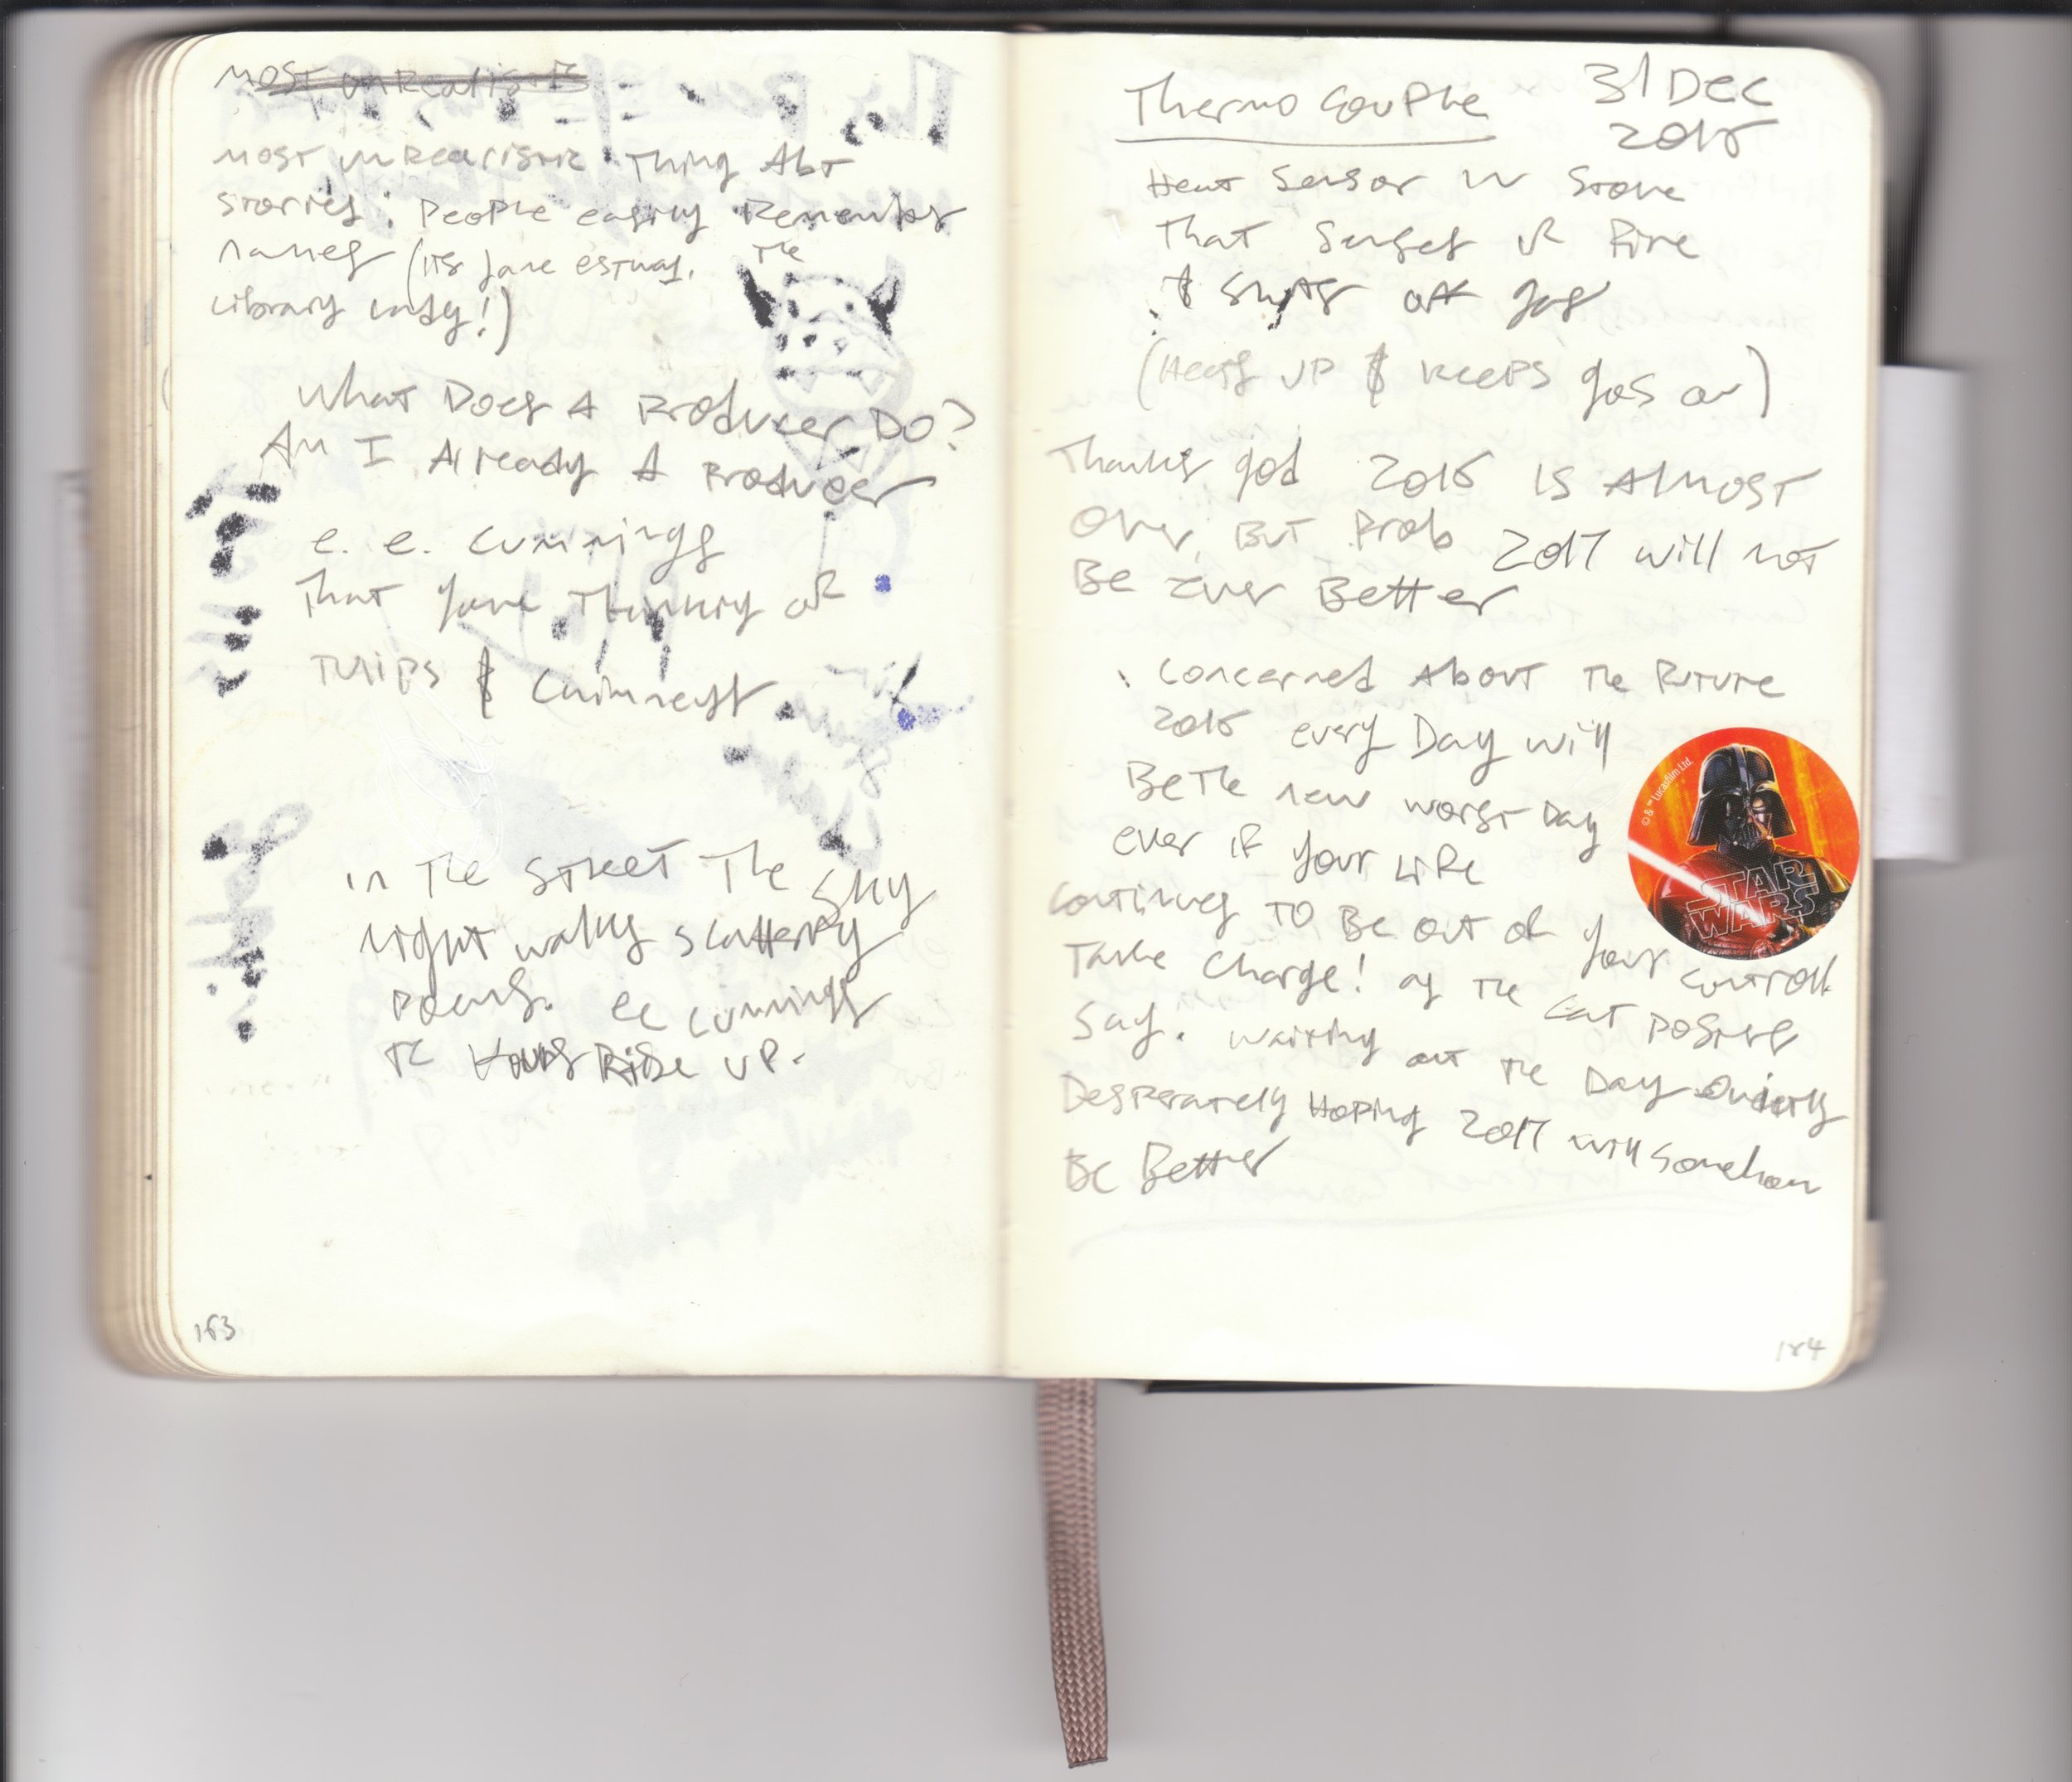 Most unrealistic
Most unrealistic Thing Abt
Stories: People easily Remember
names (its Jane Estway, The
Library Lady!)
What Does A Producer Do?
Am I Already A Producer
e. e. cummings
That Jane Thinking of
Tulips & Chimneys
in The Street The Sky
Night walks scattering
Poems. ee cummings
The Hours Rise UP.
163
Thermo Couple
31 Dec
2016
Heat Sensor in Stove
That Senses if Fire
& Shuts off gas
(Heats UP & Keeps gas on)
Thanks god 2016 is Almost
Over, But Prob 2017 will not
Be Ever Better
Concerned About The Future
2016 every Day will
Be The new worst Day
ever if your Life
Continues To Be out of your controll
Take Charge! as The Cat Posters
Say. Waiting out The Day Quietly
Desperately Hoping 2017 will Somehow
Be Better
© & ™ Lucasfilm Ltd.
STAR
WARS
164